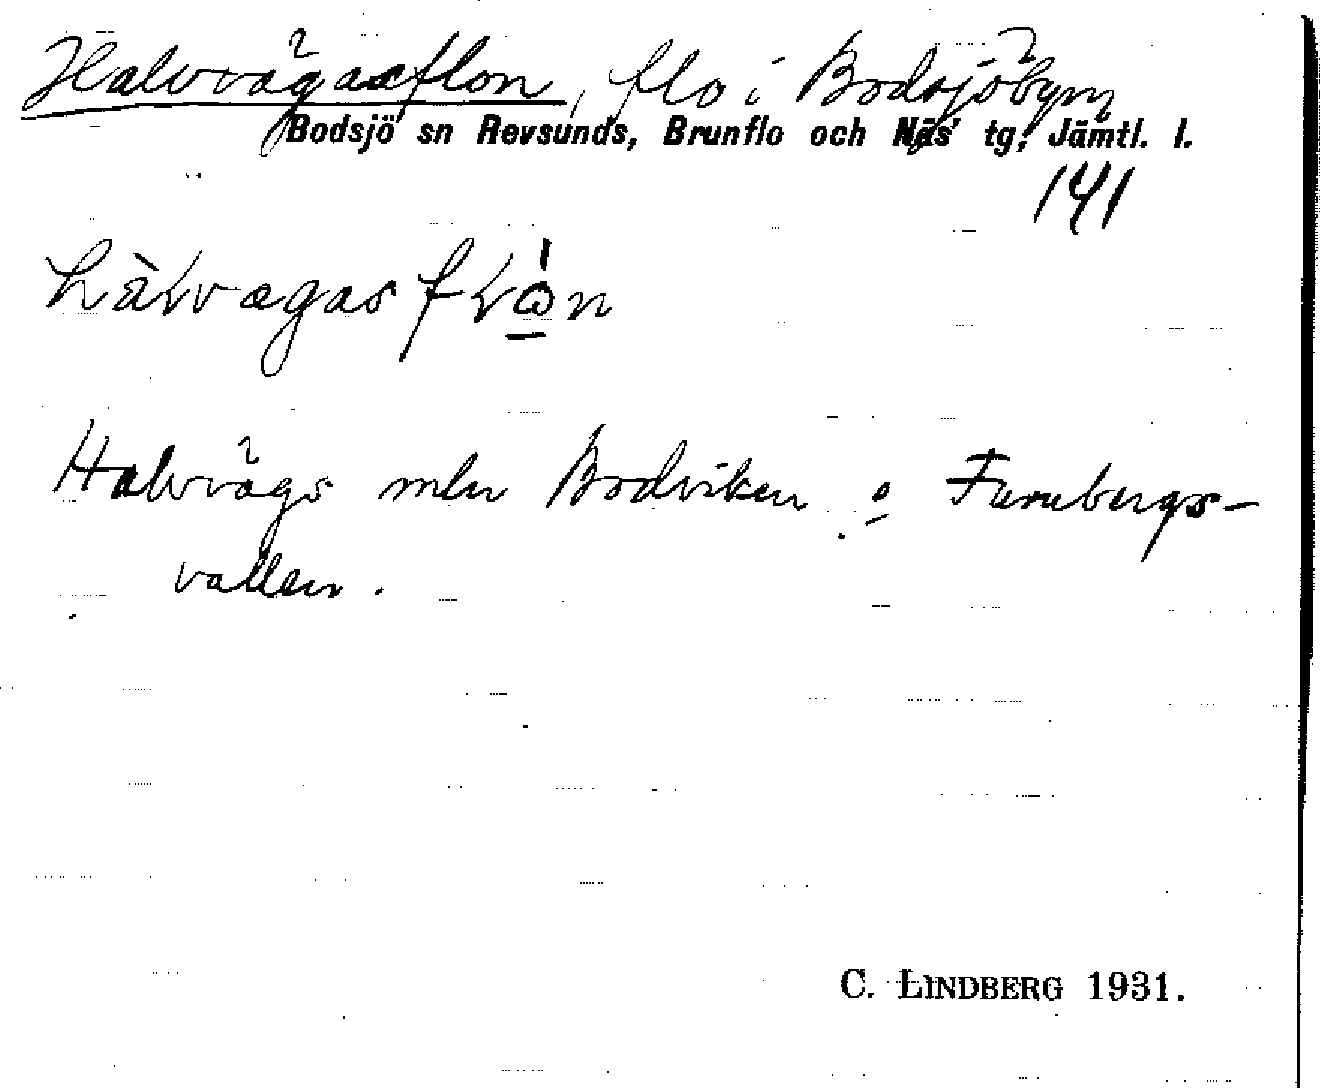 Halvvägasflon, flo i Bodsjöbyn
Bodsjö sn Revsunds, Brunflo och Näs' tg, Jämtl. l.
141
Halvvägs mln Bodviken o Furubergs-
vallen.
C. LINDBERG 1931.